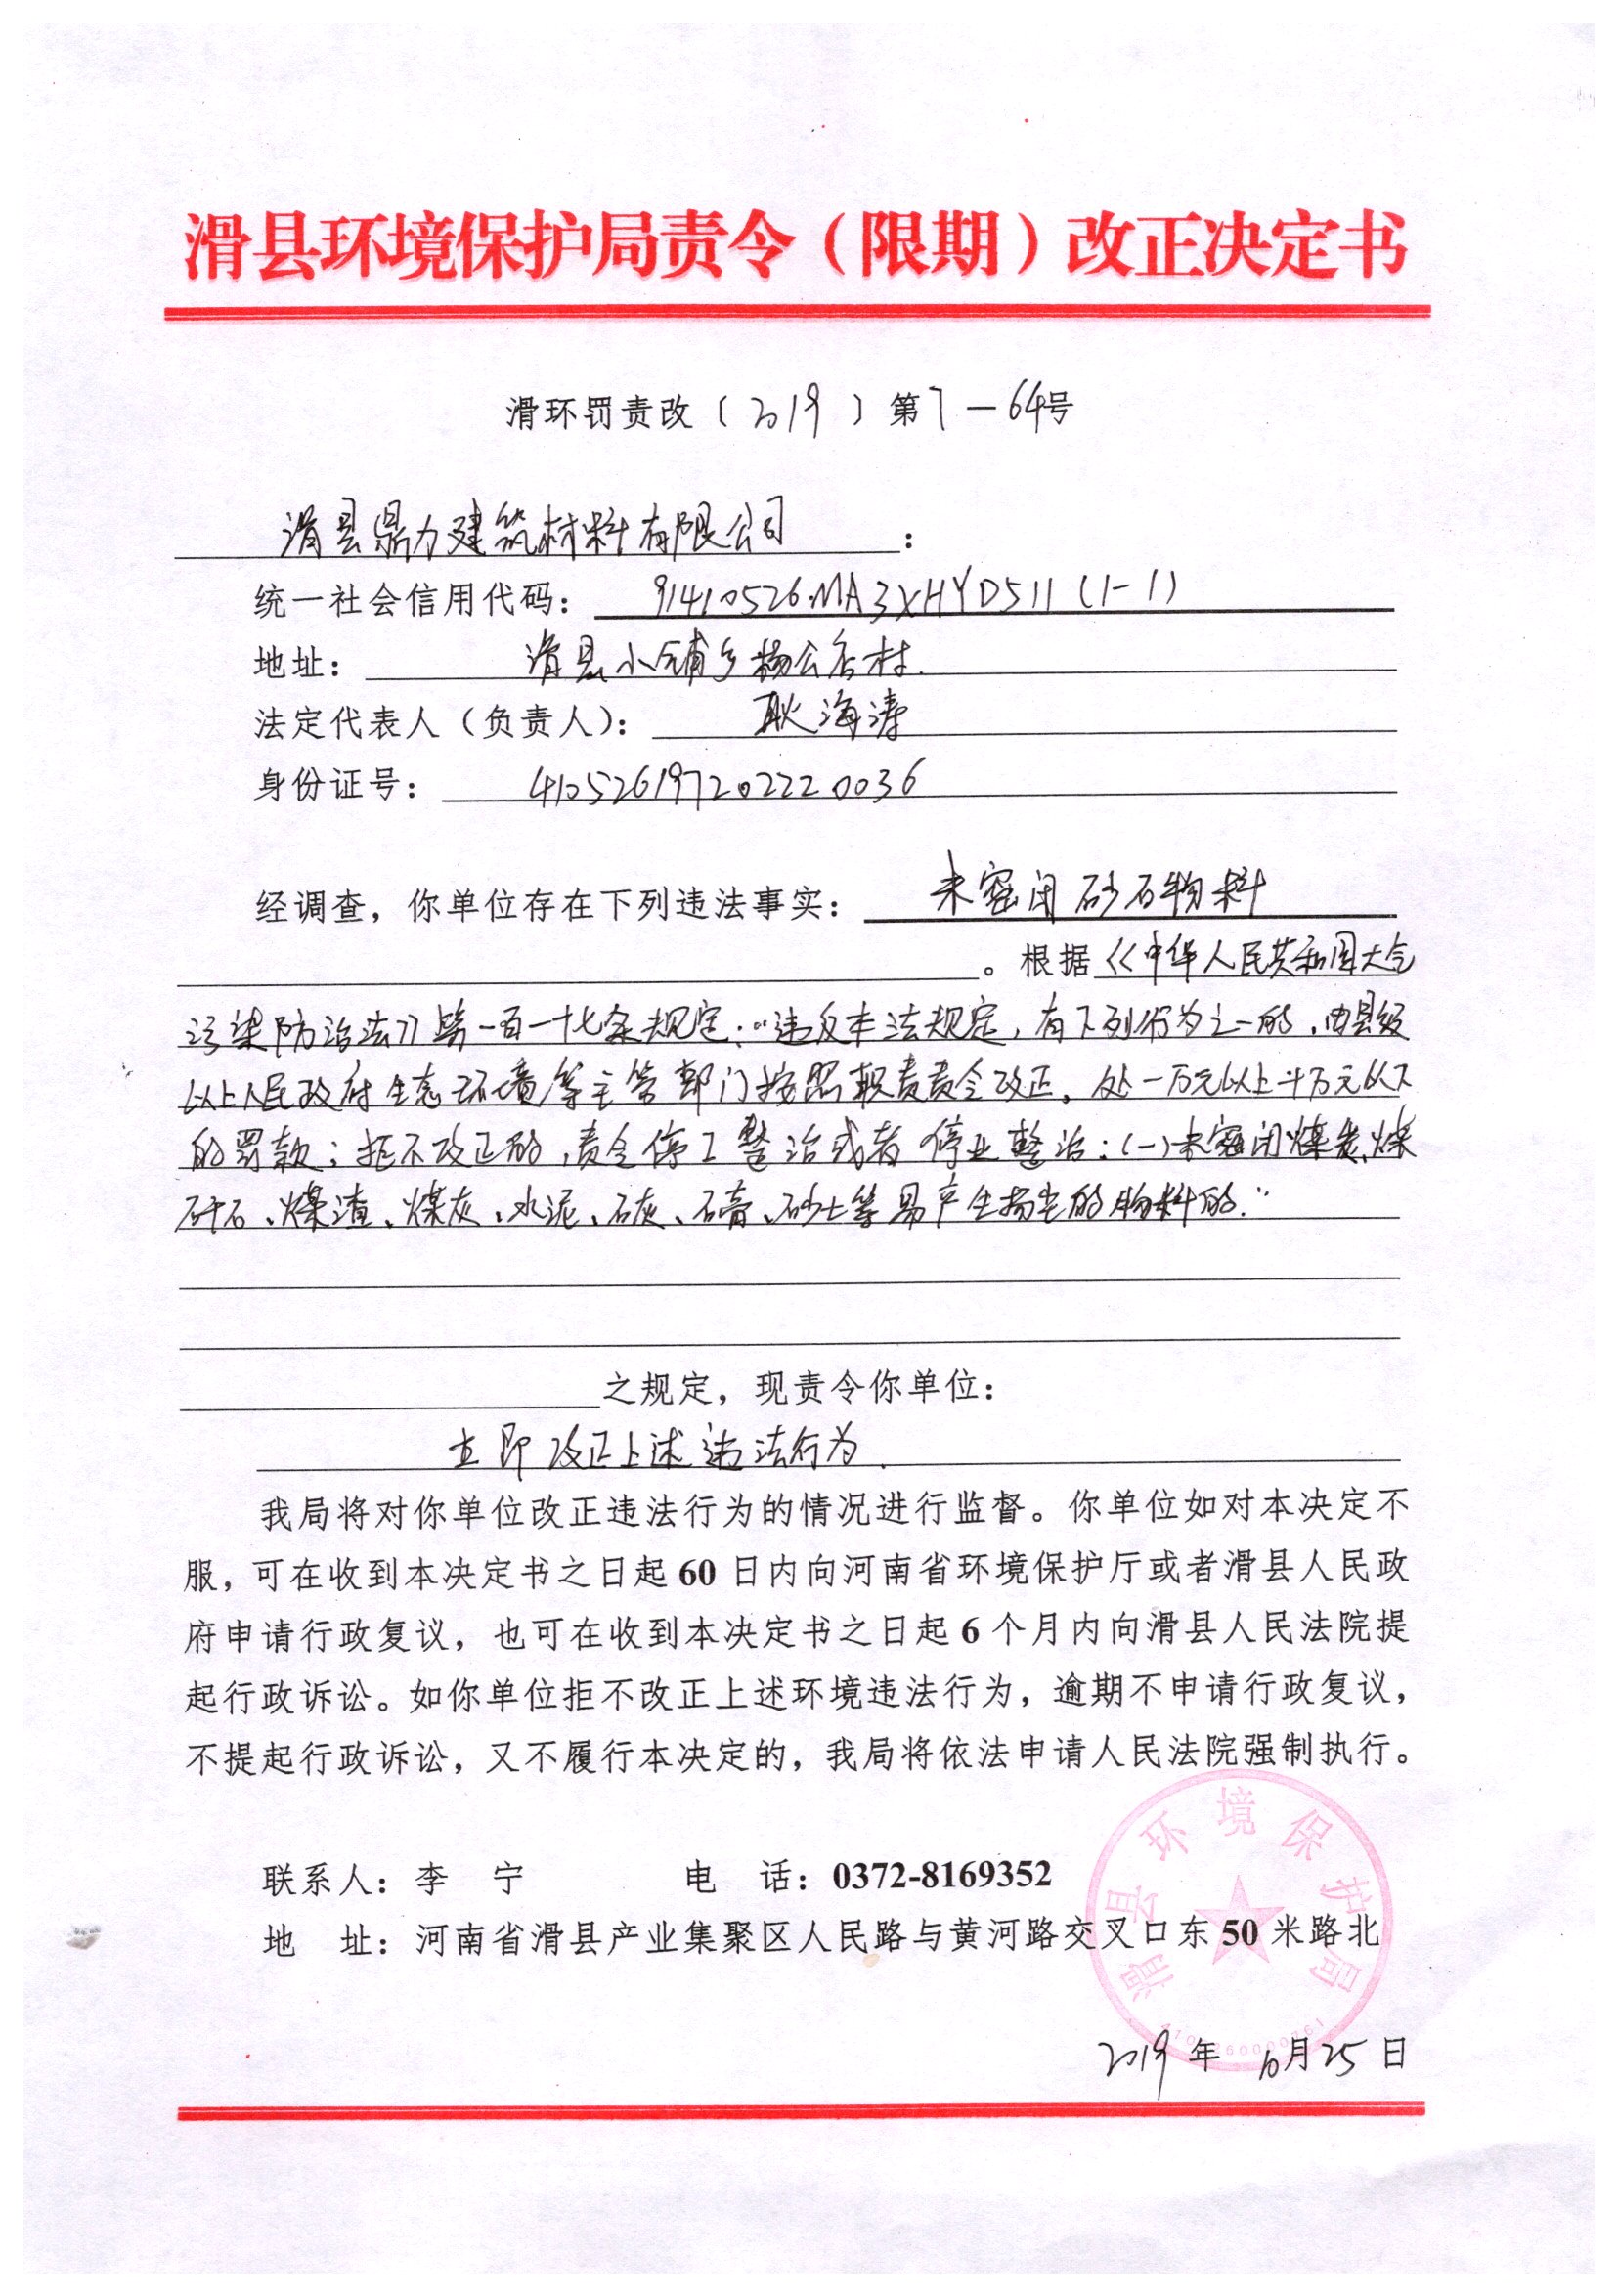 滑县环境保护局责令（限期）改正决定书
滑环罚责改〔2019〕第7－64号
滑县鼎力建筑材料有限公司：
统一社会信用代码：91410526MA3XHYD511(1-1)
地址：滑县小铺乡杨公店村.
法定代表人（负责人）：耿海涛
身份证号：410526197202220036
经调查，你单位存在下列违法事实：未密闭砂石物料
。根据《中华人民共和国大气
污染防治法》第一百一十七条规定：“违反本法规定，有下列行为之一的，由县级
以上人民政府生态环境等主管部门按照职责责令改正，处一万元以上十万元以下
的罚款；拒不改正的，责令停工整治或者停业整治：(一)未密闭煤炭、煤
矸石、煤渣、煤灰、水泥、石灰、石膏、砂土等易产生扬尘的物料的.”
之规定，现责令你单位：
立即改正上述违法行为.
我局将对你单位改正违法行为的情况进行监督。你单位如对本决定不
服，可在收到本决定书之日起60日内向河南省环境保护厅或者滑县人民政
府申请行政复议，也可在收到本决定书之日起6个月内向滑县人民法院提
起行政诉讼。如你单位拒不改正上述环境违法行为，逾期不申请行政复议，
不提起行政诉讼，又不履行本决定的，我局将依法申请人民法院强制执行。
滑县环境保护局
联系人：李　宁　　电　话：0372-8169352
地　址：河南省滑县产业集聚区人民路与黄河路交叉口东50米路北
2019年10月25日